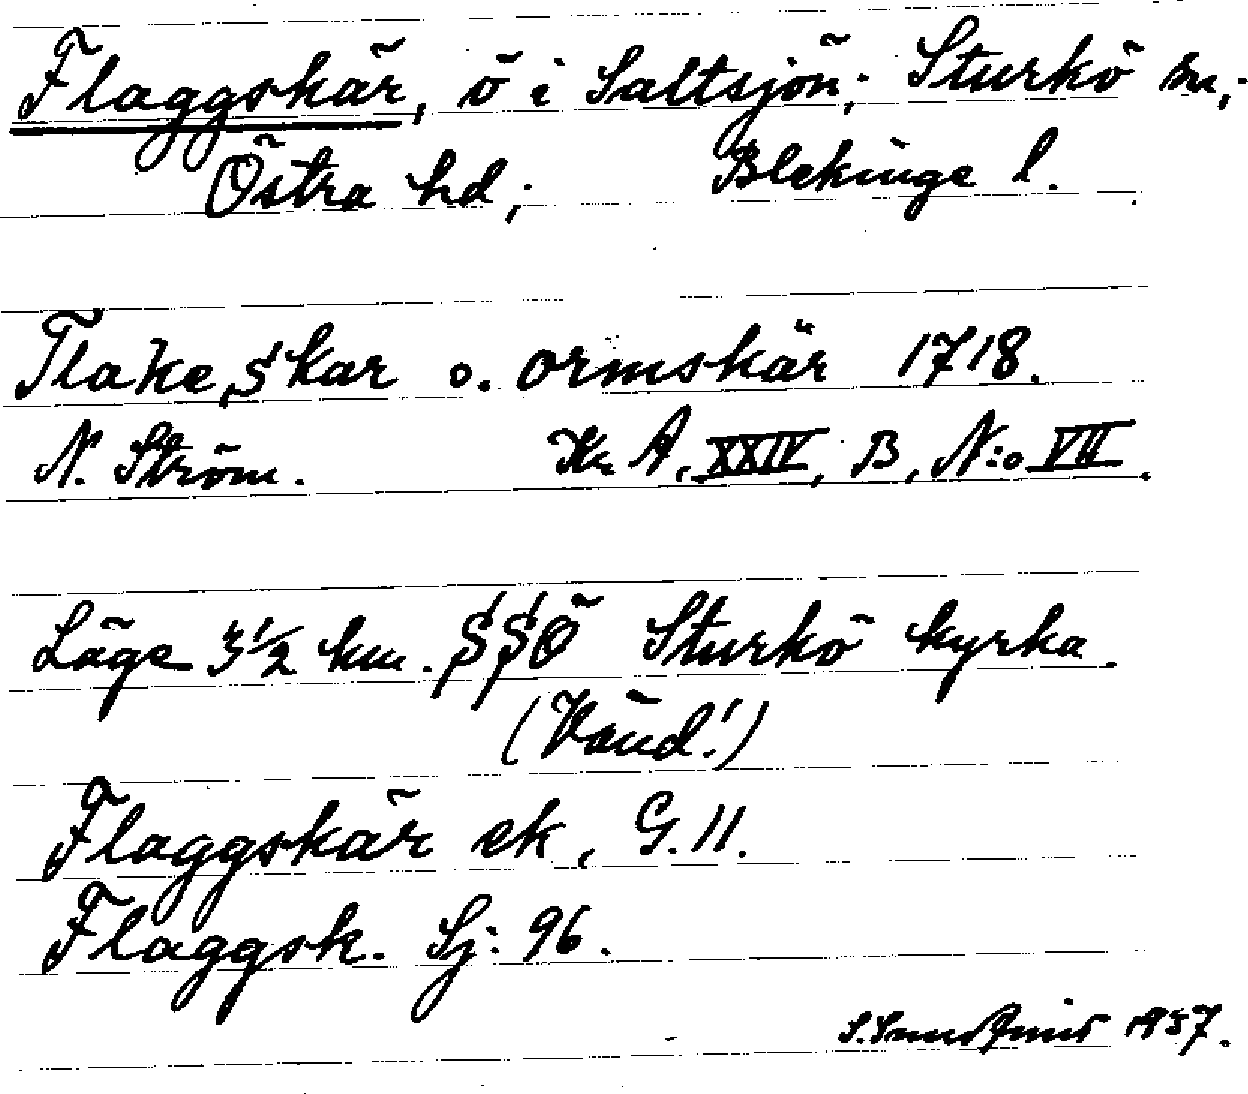 Flaggskär, ö i Saltsjön; Sturkö sn,
Östra hd; Blekinge l.
Flake,skar o. ormskär 1718.
N. Ström. Kr. A, XXIV, B, N:o VII.
Läge 3 1/2 km. SSÖ Sturkö kyrka.
(Vänd!)
Flaggskär ek, G. 11.
Flaggsk. Sj: 96.
1957.